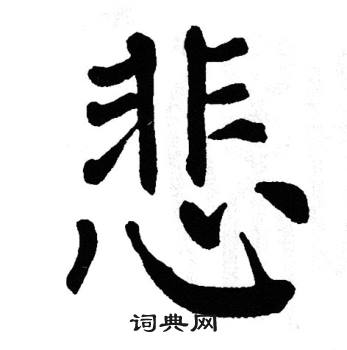 悲
词典网